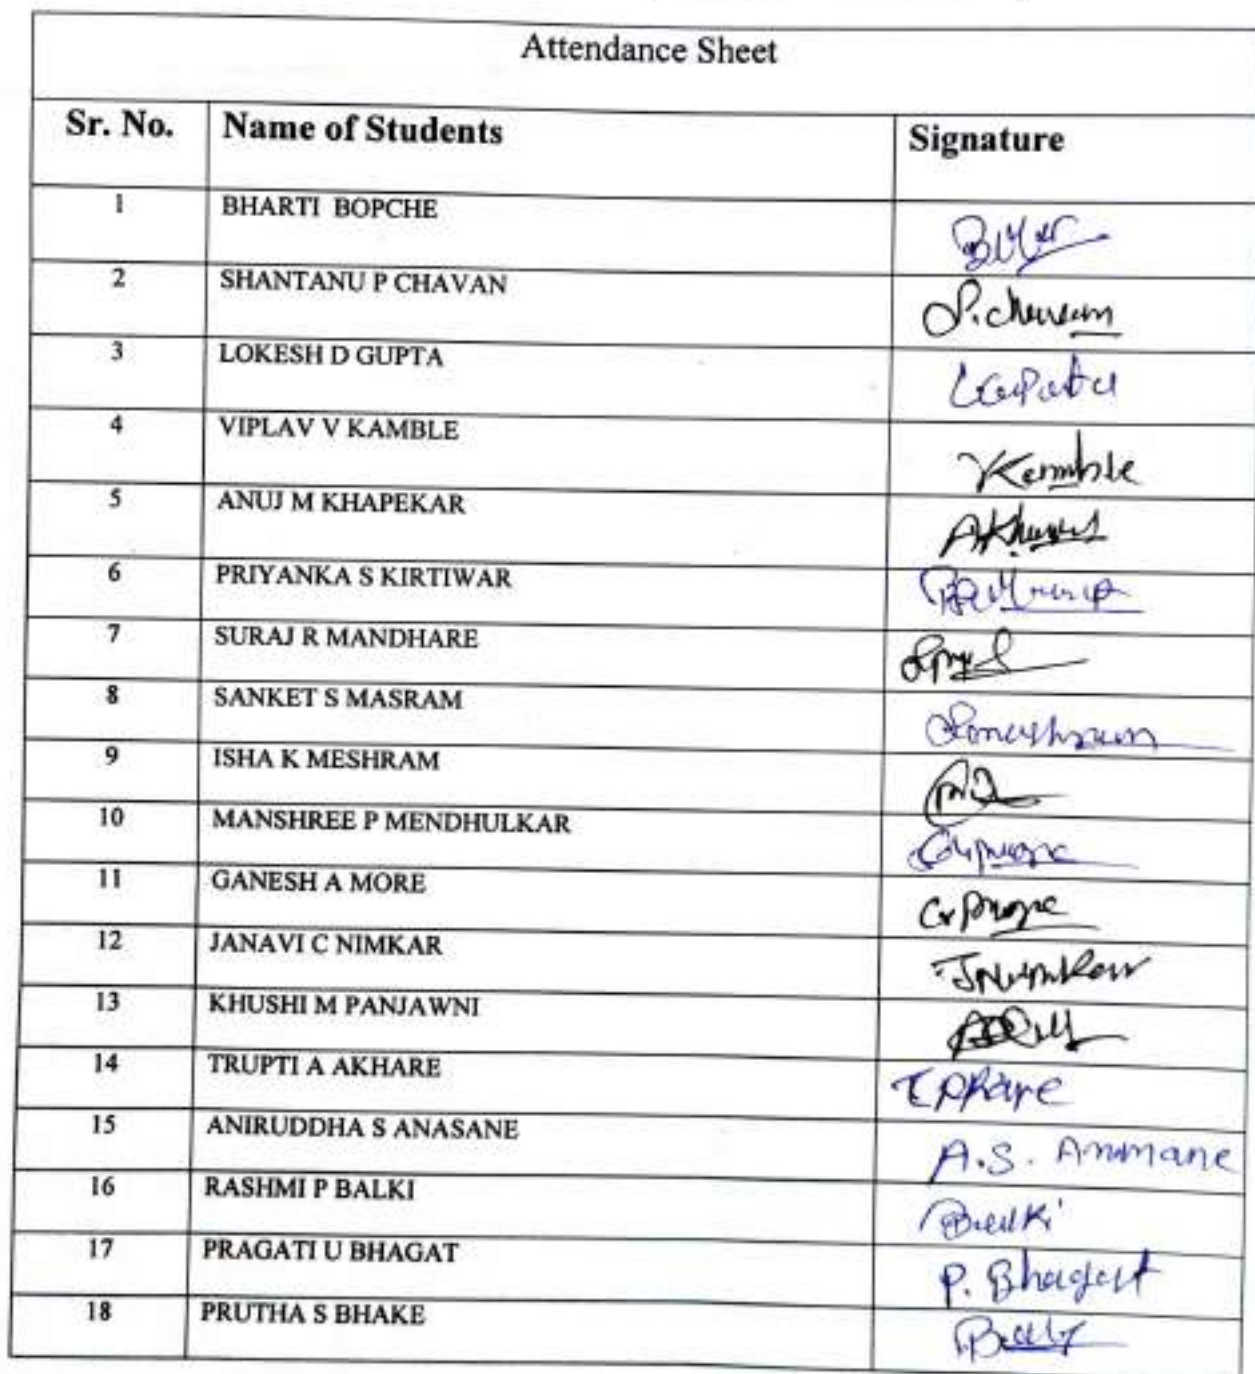 Attendance Sheet
Sr. No. Name of Students Signature
1 BHARTI BOPCHE
2 SHANTANU P CHAVAN S. Chavan
3 LOKESH D GUPTA
4 VIPLAV V KAMBLE VKamble
5 ANUJ M KHAPEKAR
6 PRIYANKA S KIRTIWAR
7 SURAJ R MANDHARE
8 SANKET S MASRAM
9 ISHA K MESHRAM
10 MANSHREE P MENDHULKAR
11 GANESH A MORE
12 JANAVI C NIMKAR JNimkar
13 KHUSHI M PANJAWNI
14 TRUPTI A AKHARE
15 ANIRUDDHA S ANASANE A.S.
16 RASHMI P BALKI Balki
17 PRAGATI U BHAGAT P. Bhagat
18 PRUTHA S BHAKE